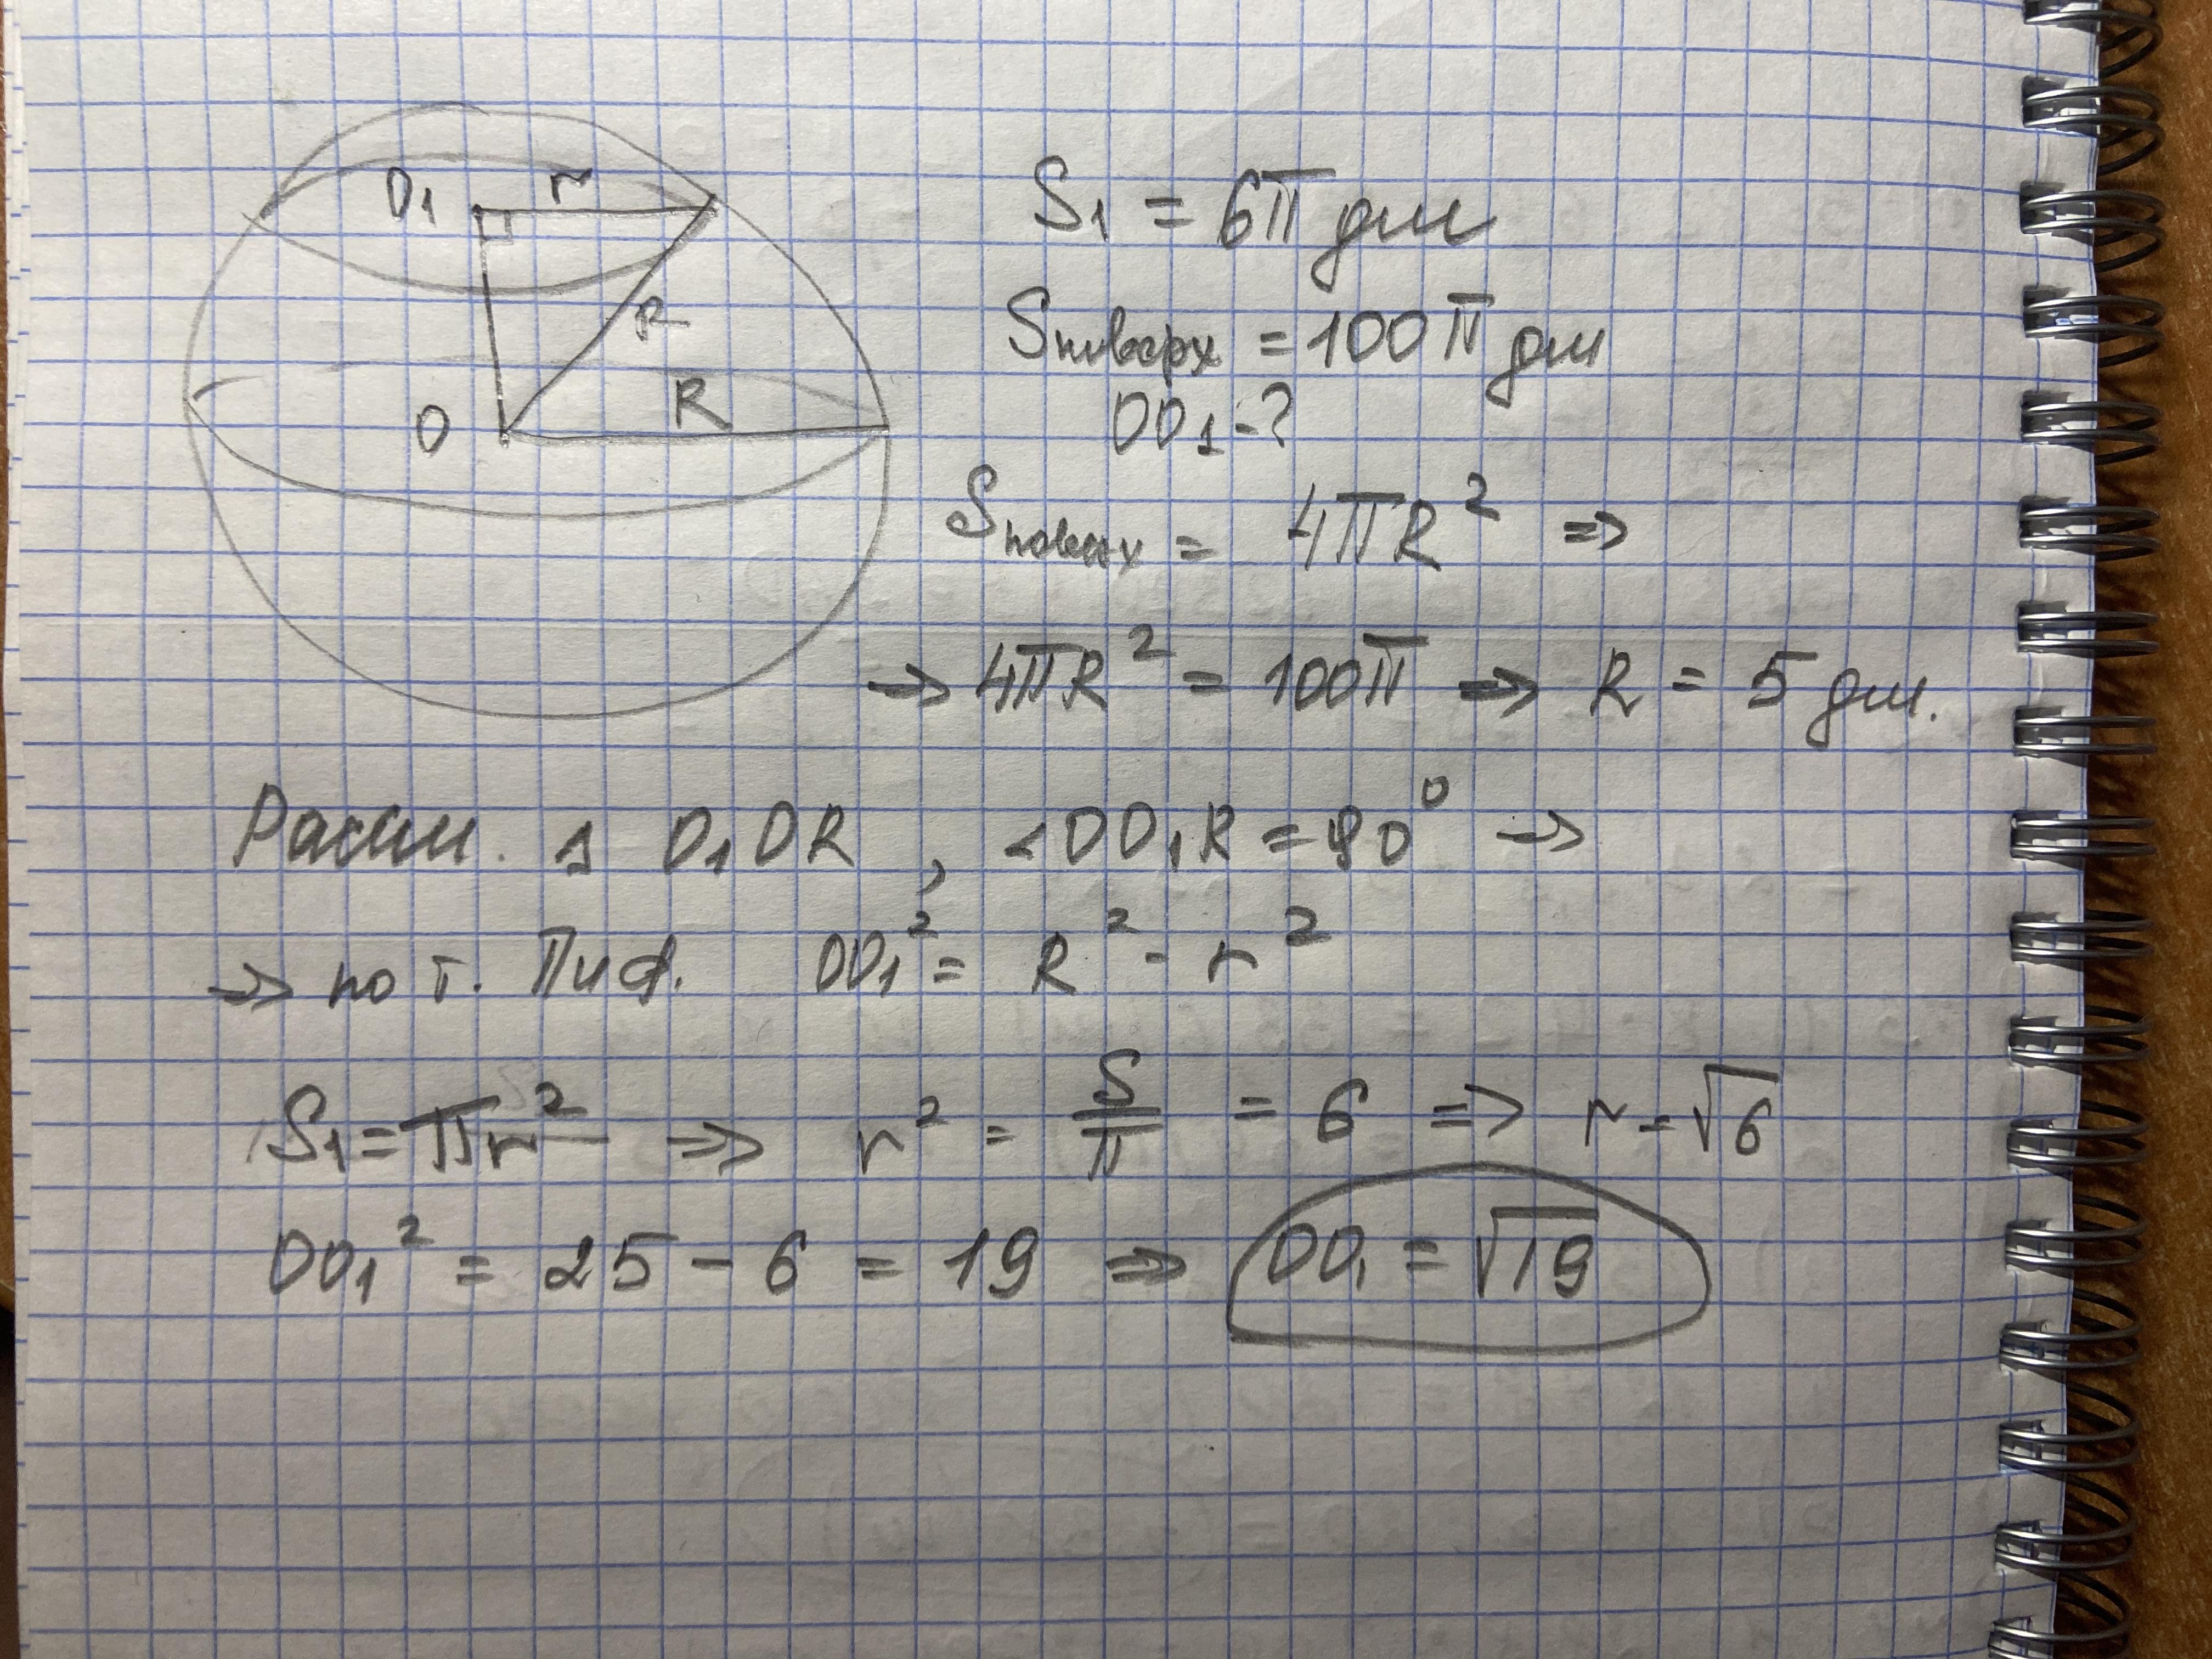 O₁ r
R
O R
S₁ = 6π дм
Sповерх = 100π дм
OO₁ - ?
Sповерх = 4πR² =>
=> 4πR² = 100π => R = 5 дм.
Рассм. △ O₁OR, <OO₁R = 90° =>
=> по т. Пиф. OO₁² = R² - r²
S₁ = πr² => r² = S/π = 6 => r = √6
OO₁² = 25 - 6 = 19 => OO₁ = √19